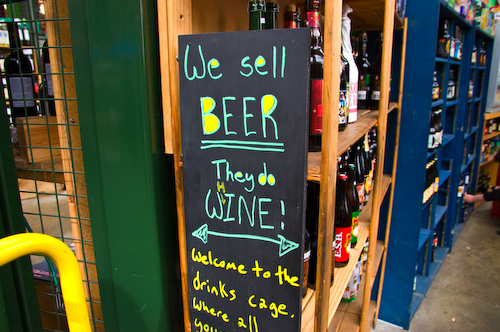 We sell
BEER
They do
H
WINE!
Welcome to the
drinks cage.
Where all
E.S.B.